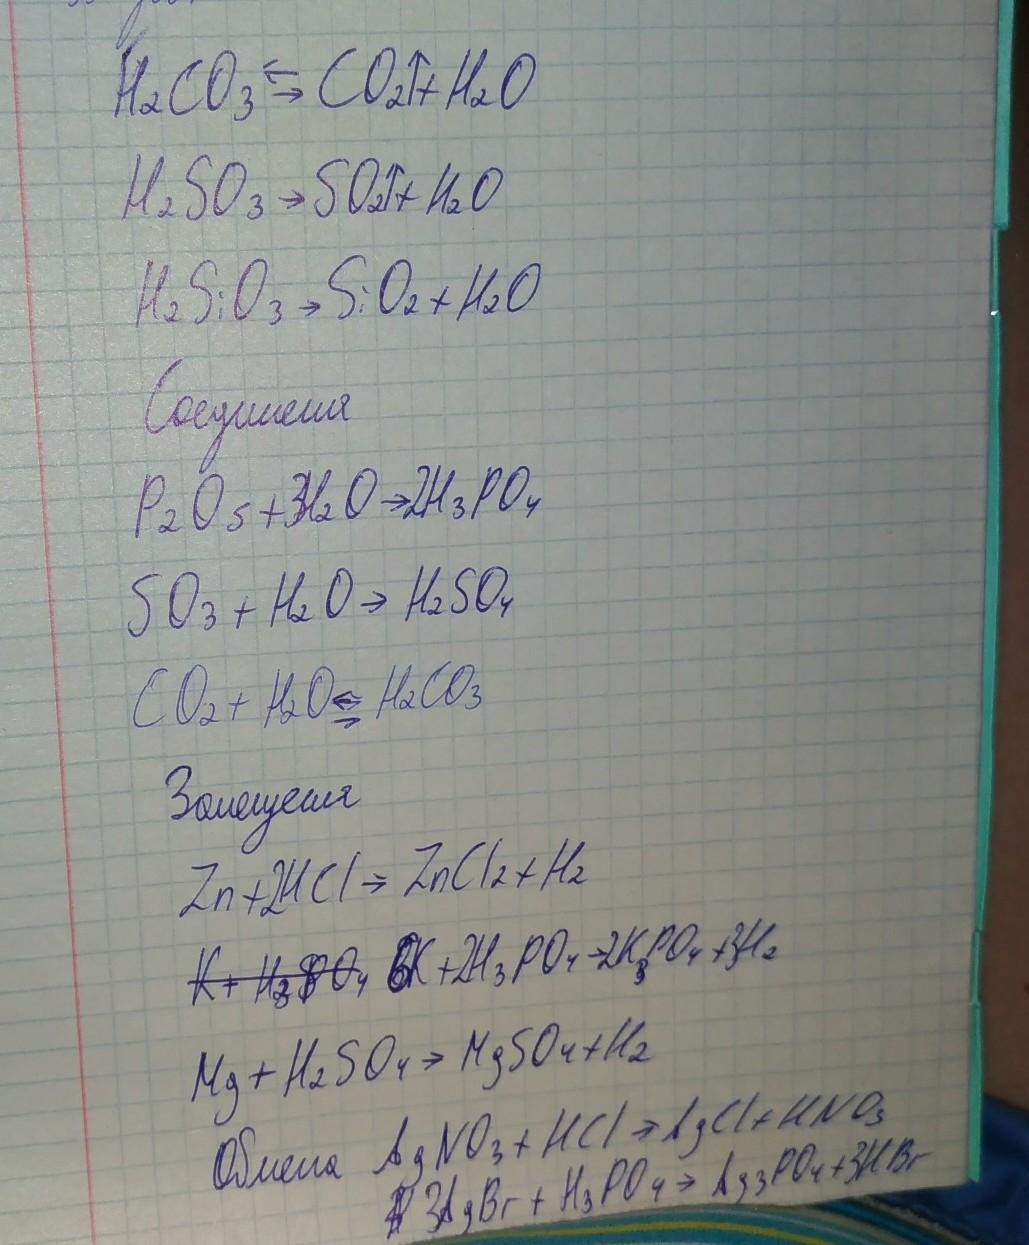 H₂CO₃ ⇆ CO₂↑+H₂O
H₂SO₃→SO₂↑+H₂O
H₂SiO₃→SiO₂+H₂O
Соединения
P₂O₅+3H₂O→2H₃PO₄
SO₃+H₂O→H₂SO₄
CO₂+H₂O⇆H₂CO₃
Замещения
Zn+2HCl→ZnCl₂+H₂
K+H₃PO₄ 6K+2H₃PO₄→2K₃PO₄+3H₂
Mg+H₂SO₄→MgSO₄+H₂
Обмена AgNO₃+HCl→AgCl+HNO₃
3AgBr+H₃PO₄→Ag₃PO₄+3HBr